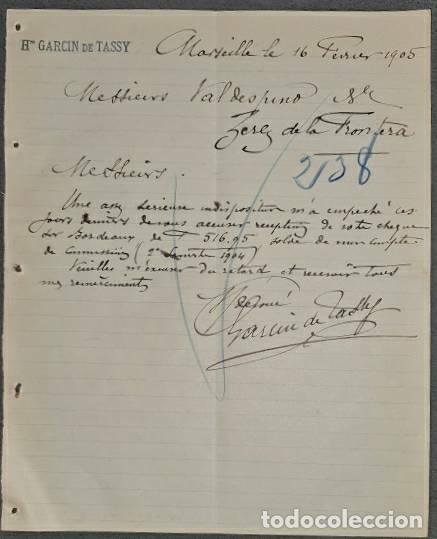 Hre GARCIN DE TASSY
Marseille le 16 Fevrier 1905
Messieurs Valdespino
Xerez de la Frontera
2138
Messieurs.
Une assez serieuse indisposition m'a empeché ces
jours derniers de vous accuser reception de votre cheque
sur Bordeaux de F 516.95 solde de mon compte
de Commissions (2e Semestre 1904)
Veuillez m'excuser du retard et recevoir tous
mes remerciements
Garcin de Tassy
todocoleccion.net